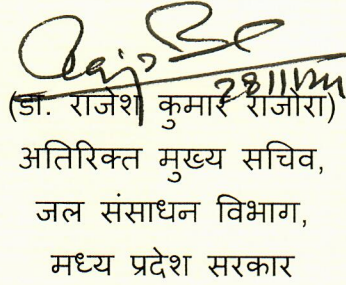 (डा. राजेश कुमार राजोरा)
अतिरिक्त मुख्य सचिव,
जल संसाधन विभाग,
मध्य प्रदेश सरकार